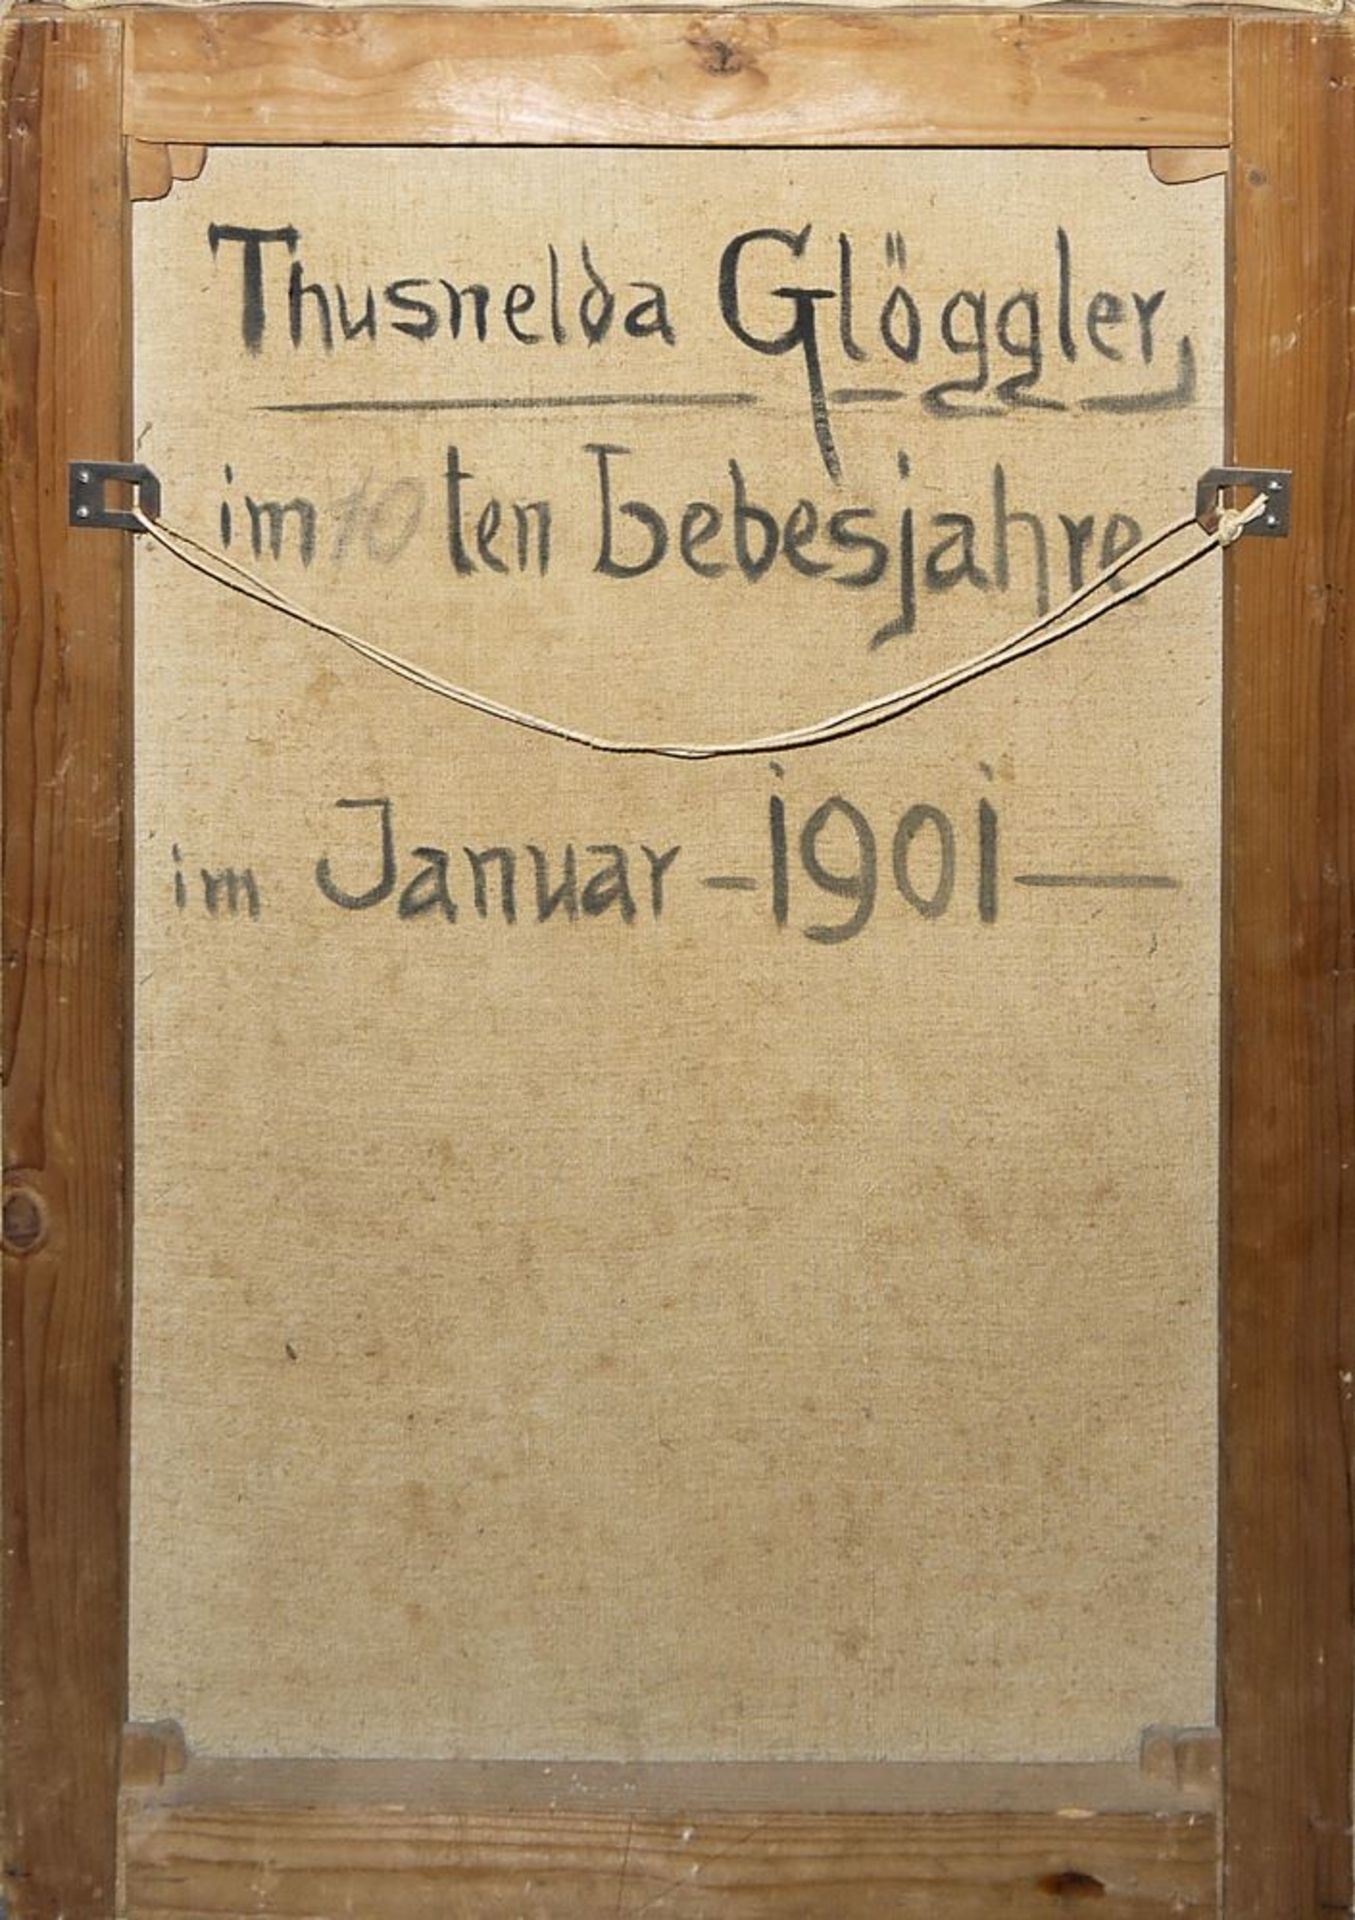 Thusnelda Glöggler,
im 10 ten Lebesjahre
im Januar - 1901 —